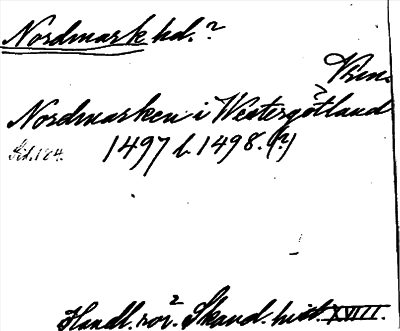 Nordmark hd.?
Vrm.
Nordmarken i Westergötland ?
Sid. 184. 1497 l. 1498. (?)
Handl. rör. Skand. hist. XVIII.